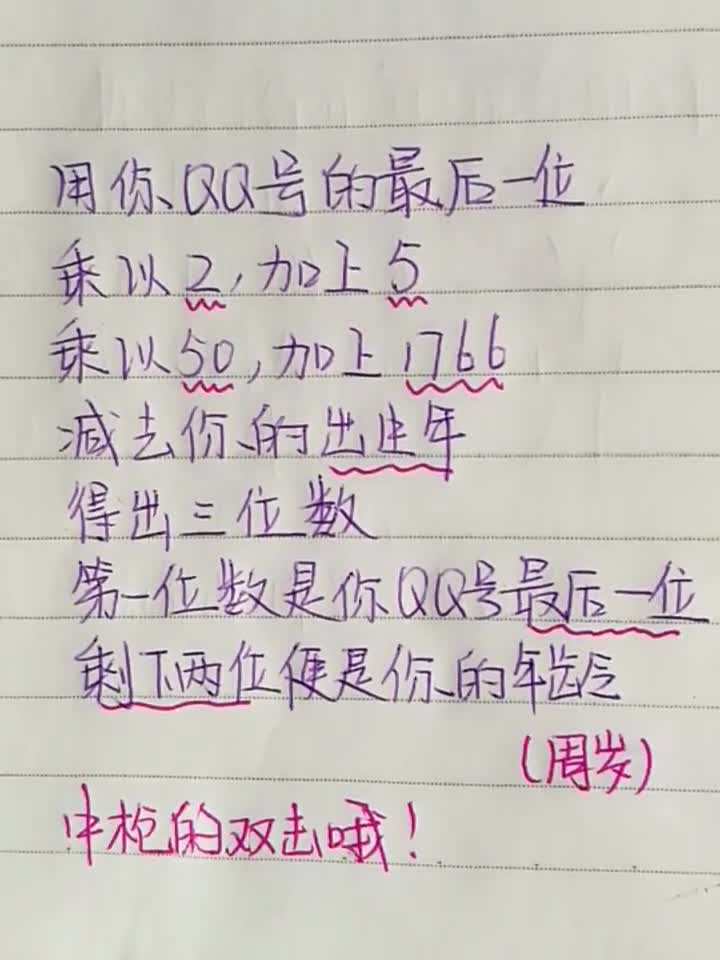 用你QQ号的最后一位
乘以2,加上5
乘以50,加上1766
减去你的出生年
得出三位数
第一位数是你QQ号最后一位
剩下两位便是你的年龄
(周岁)
中枪的双击哦!